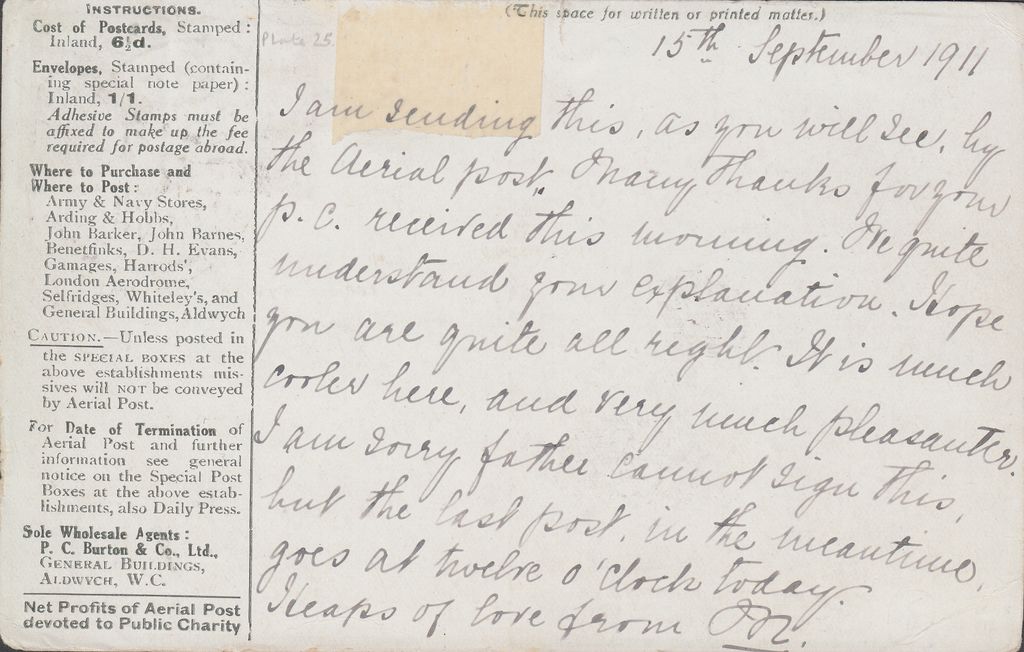 INSTRUCTIONS.
Cost of Postcards, Stamped :
Inland, 6½d.
Envelopes, Stamped (contain-
ing special note paper) :
Inland, 1/1.
Adhesive Stamps must be
affixed to make up the fee
required for postage abroad.
Where to Purchase and
Where to Post :
Army & Navy Stores,
Arding & Hobbs,
John Barker, John Barnes,
Benetfinks, D. H. Evans,
Gamages, Harrods',
London Aerodrome,
Selfridges, Whiteley's, and
General Buildings, Aldwych
CAUTION.—Unless posted in
the SPECIAL BOXES at the
above establishments mis-
sives will NOT be conveyed
by Aerial Post.
For Date of Termination of
Aerial Post and further
information see general
notice on the Special Post
Boxes at the above estab-
lishments, also Daily Press.
Sole Wholesale Agents :
P. C. Burton & Co., Ltd.,
GENERAL BUILDINGS,
ALDWYCH, W.C.
Net Profits of Aerial Post
devoted to Public Charity
(This space for written or printed matter.)
Plate 25.
15th September 1911
I am sending this, as you will see, by
the Aerial post. Many thanks for your
p.c. received this morning. We quite
understand your explanation. Hope
you are quite all right. It is much
cooler here, and very much pleasanter.
I am sorry father cannot sign this,
but the last post, in the meantime,
goes at twelve o'clock today.
Heaps of love from M.